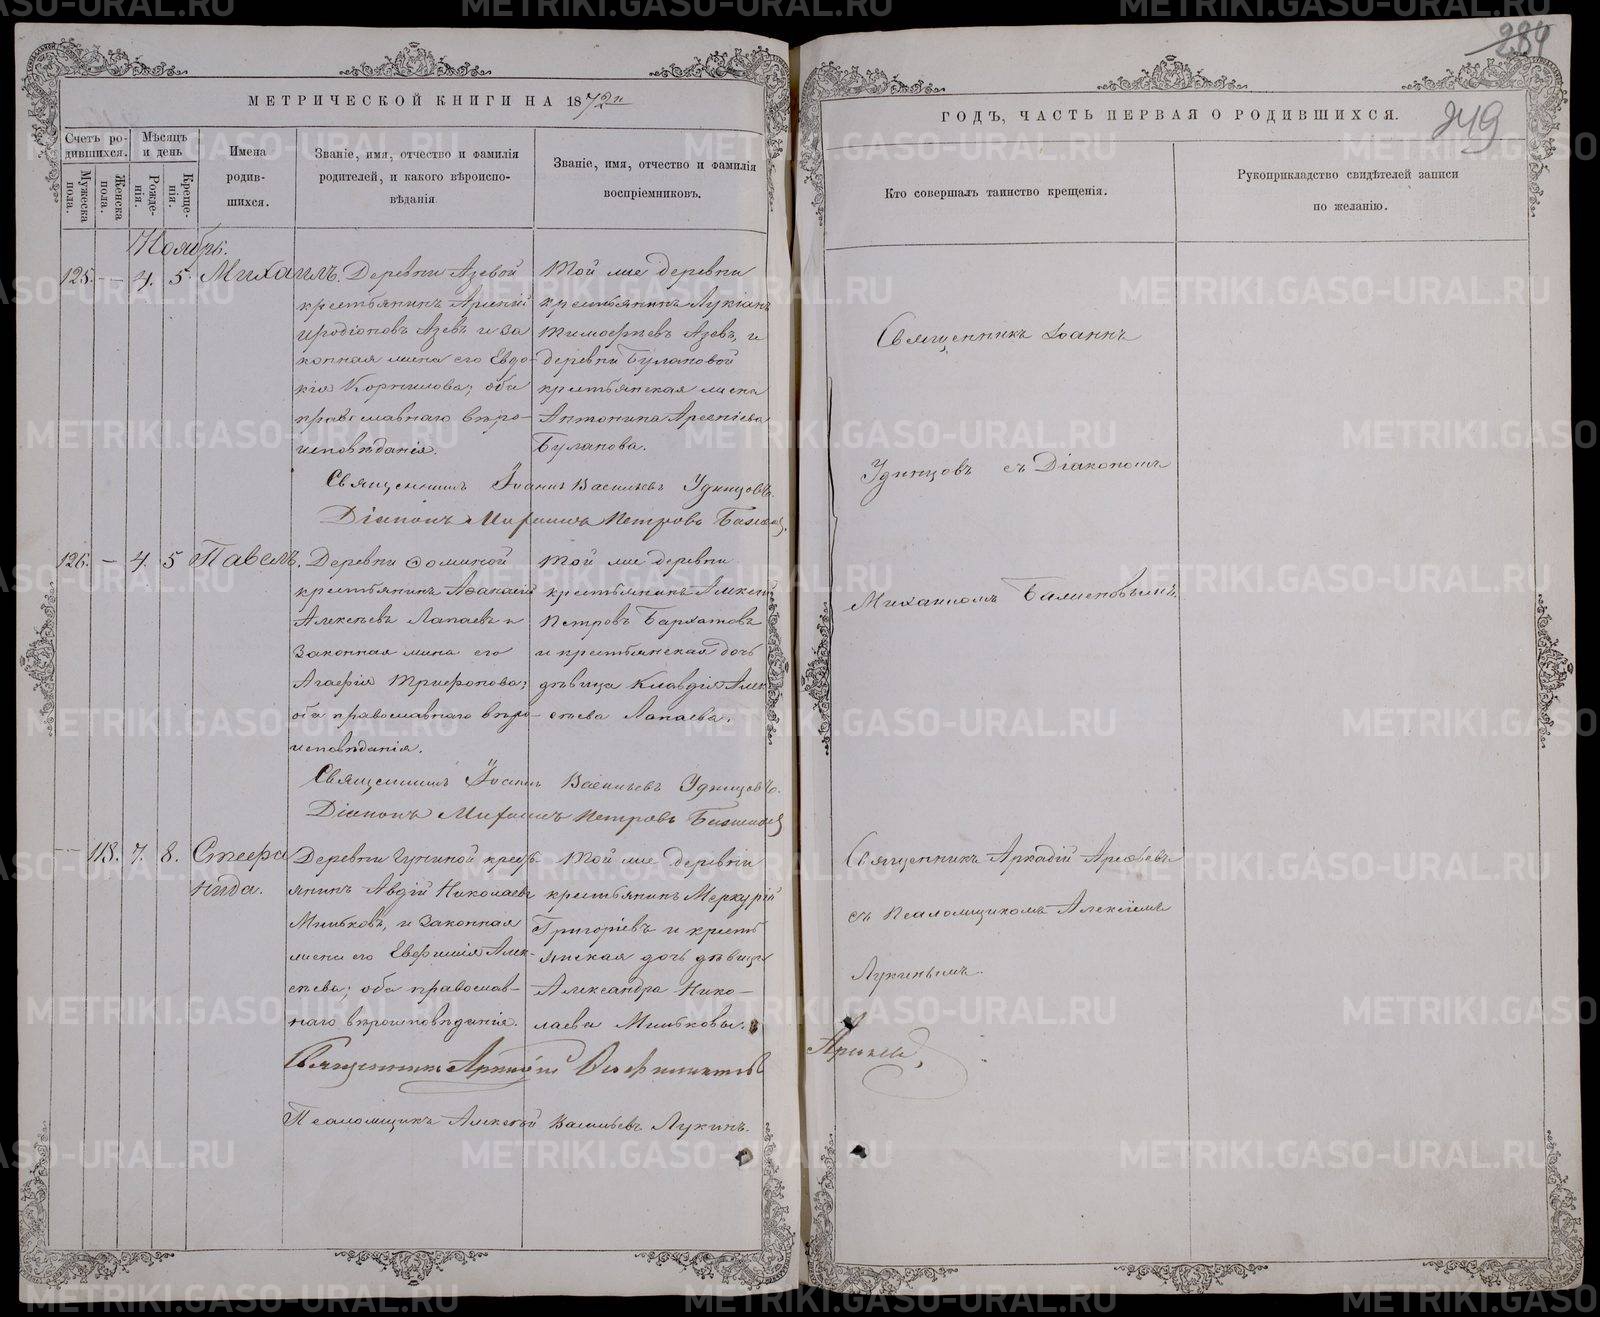 МЕТРИЧЕСКОЙ КНИГИ НА 1872й
Счетъ ро-
дившихся.
Мужеска
пола.
Женска
пола.
Мѣсяцъ
и день
Рожде-
нія.
Креще-
нія.
Имена
родив-
шихся.
Званіе, имя, отчество и фамилія
родителей, и какого вѣроиспо-
вѣданія
Званіе, имя, отчество и фамилія
воспріемниковъ.
Ноябрь.
125. — 4. 5. Михаилъ.
Деревни Азевой
крестьянинъ Арсеній
Иродіоновъ Азевъ и за
конная жена его Евдо-
кія Корнилова; оба
православнаго вѣро-
исповѣданія.
Той же деревни
крестьянинъ Лукіанъ
Тимофеевъ Азевъ, и
деревни Булановой
крестьянская жена
Антонина Арсеніева
Буланова.
Священникъ Іоаннъ Васильевъ Удинцовъ.
Діаконъ Михаилъ Петровъ
126. — 4. 5 Павелъ.
Деревни Ѳоминой
крестьянинъ Аѳанасій
Алексѣевъ Лапаевъ и
законная жена его
Агафія Трифонова;
оба православнаго вѣро-
исповѣданія.
Той же деревни
крестьянинъ Алексѣй
Петровъ Бархатовъ
и крестьянская дочь
дѣвица Клавдія Алек
сѣева Лапаева.
Священникъ Іоаннъ Васильевъ Удинцовъ.
Діаконъ Михаилъ Петровъ
— 118. 7. 8. Стефа
нида.
Деревни Гуниной крест
янинъ Авдій Николаевъ
Мильковъ, и законная
жена его Евфимія Алек-
сѣева; оба православ-
наго вѣроисповѣданія.
Той же деревни
крестьянинъ Меркурій
Григоріевъ и кресть
янская дочь дѣвица
Александра Нико-
лаева Милькова.
Священникъ Аркадій
Псаломщикъ Алексѣй Васильевъ Лукинъ.
284
249
ГОДЪ, ЧАСТЬ ПЕРВАЯ О РОДИВШИХСЯ.
Кто совершалъ таинство крещенія.
Рукоприкладство свидѣтелей записи
по желанію.
Священникъ Іоаннъ
Удинцовъ съ Діакономъ
Михаиломъ
Священникъ Аркадій
съ Псаломщикомъ Алексіемъ
Лукинымъ.
METRIKI.GASO-URAL.RU